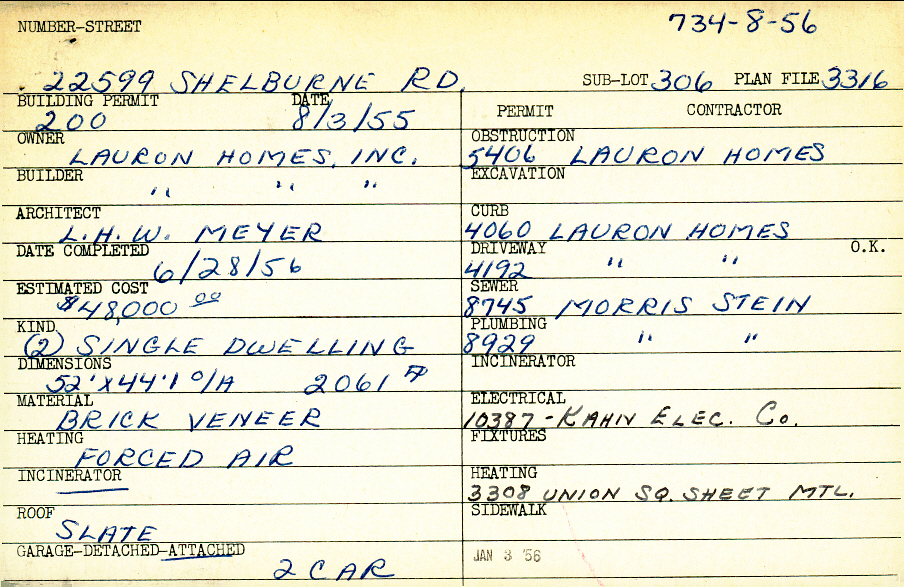 NUMBER-STREET 734-8-56
22599 SHELBURNE RD. SUB-LOT 306 PLAN FILE 3316
BUILDING PERMIT DATE
200 8/3/55
OWNER
LAURON HOMES, INC.
BUILDER
" " "
ARCHITECT
L.H.W. MEYER
DATE COMPLETED
6/28/56
ESTIMATED COST
$48,000 00
KIND
(2) SINGLE DWELLING
DIMENSIONS
52'X44'1 O/A 2061
MATERIAL
BRICK VENEER
HEATING
FORCED AIR
INCINERATOR
ROOF
SLATE
GARAGE-DETACHED-ATTACHED
2 CAR
PERMIT CONTRACTOR
OBSTRUCTION
5406 LAURON HOMES
EXCAVATION
CURB
4060 LAURON HOMES
DRIVEWAY O.K.
4192 " "
SEWER
8745 MORRIS STEIN
PLUMBING
8929 " "
INCINERATOR
ELECTRICAL
10387-KAHN ELEC. CO.
FIXTURES
HEATING
3308 UNION SQ. SHEET MTL.
SIDEWALK
JAN 3 '56